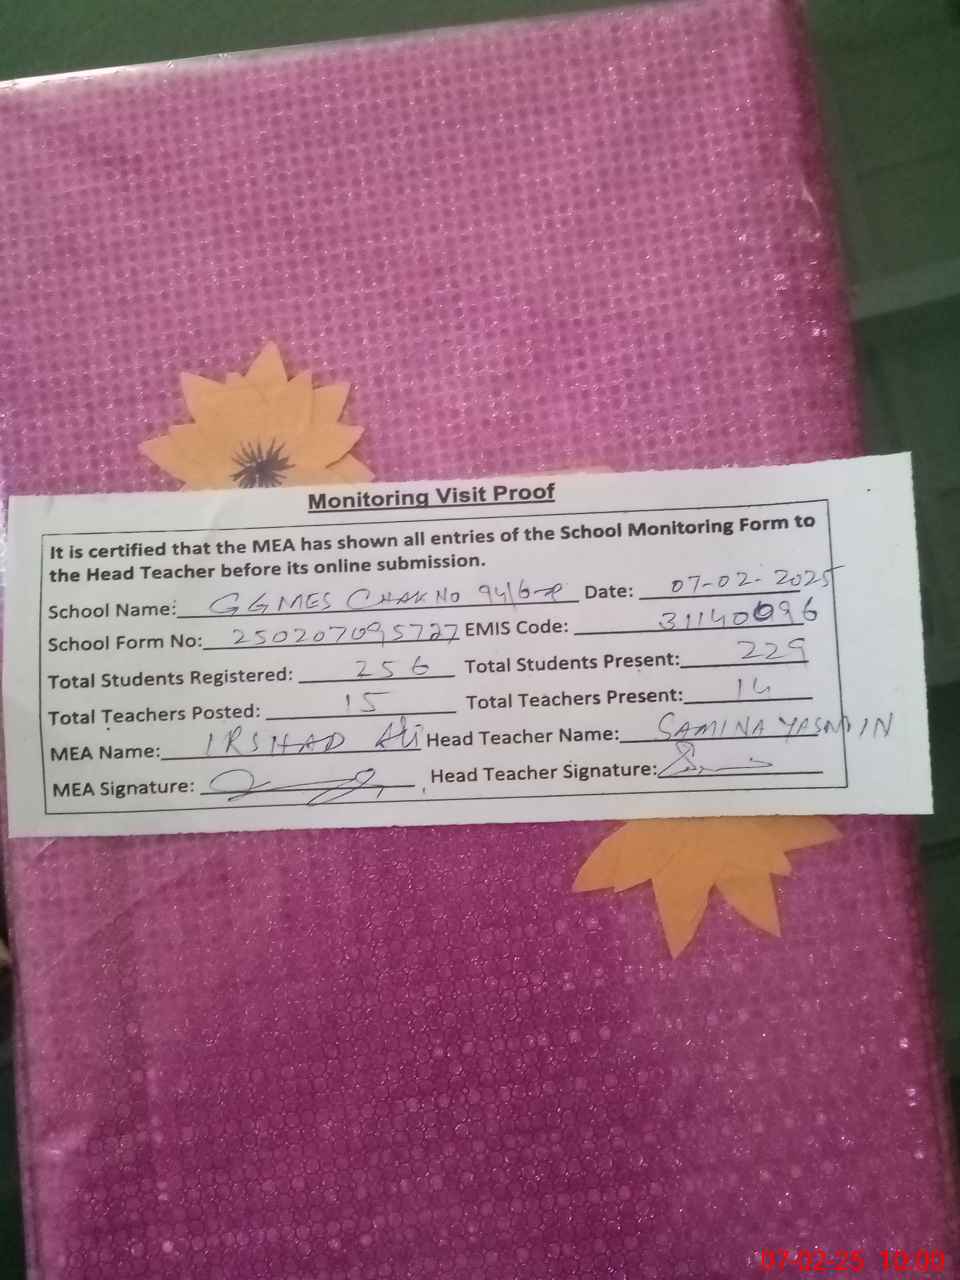 Monitoring Visit Proof
It is certified that the MEA has shown all entries of the School Monitoring Form to
the Head Teacher before its online submission.
School Name: GGMES CHAK NO 94/6-R Date: 07-02-2025
School Form No: 250207095727 EMIS Code: 31140696
Total Students Registered: 256 Total Students Present: 229
Total Teachers Posted: 15 Total Teachers Present: 14
MEA Name: IRSHAD Ali Head Teacher Name: SAMINA YASMIN
MEA Signature: Head Teacher Signature:
07-02-25 10:00